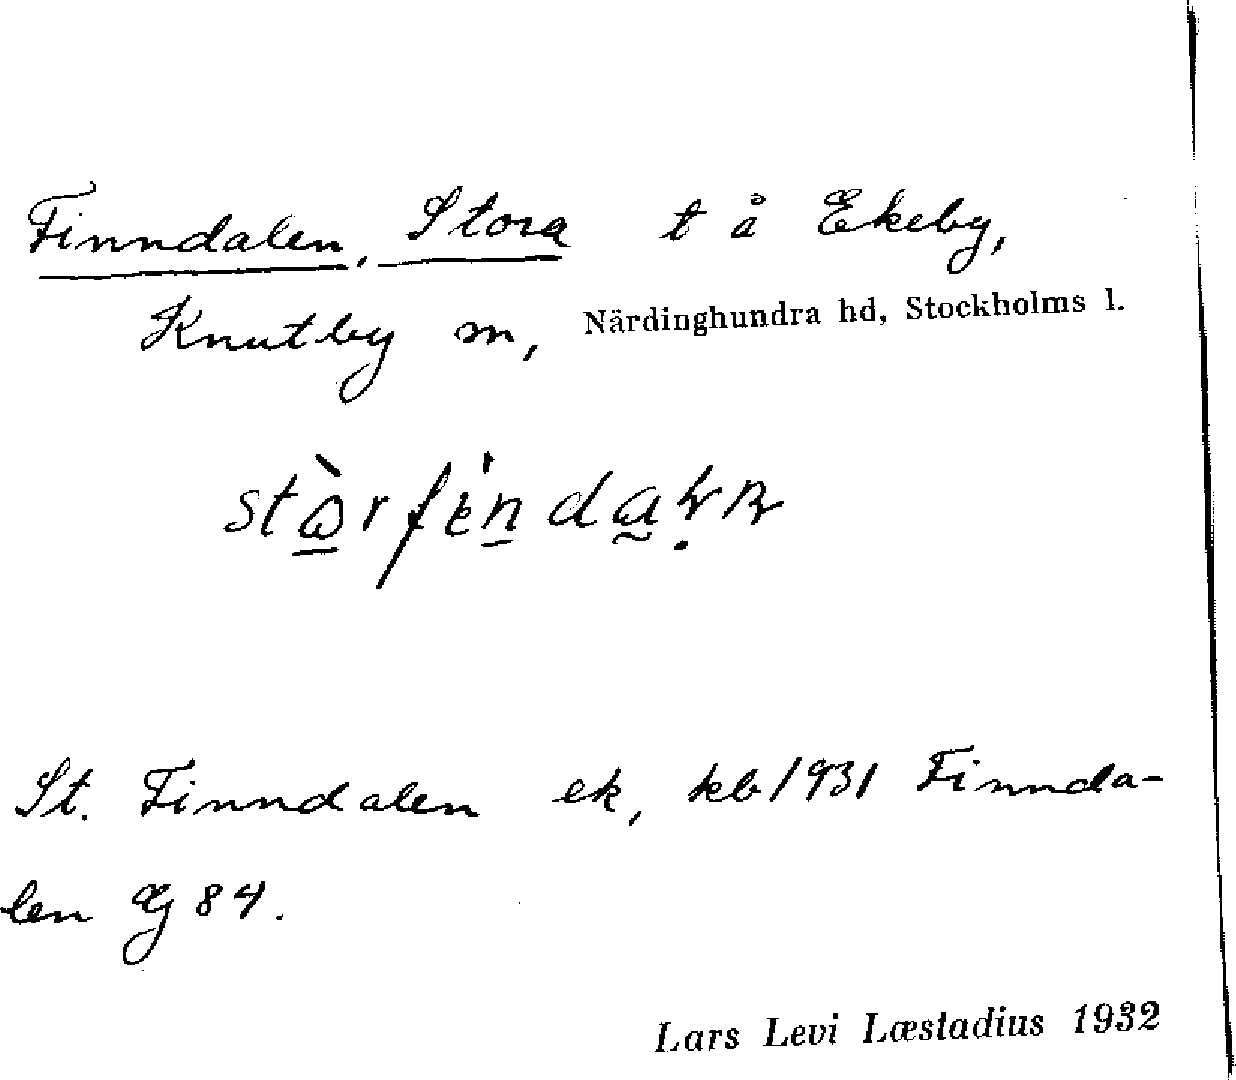 Finndalen, Stora t å Ekeby,
Knutby sn, Närdinghundra hd, Stockholms l.
St. Finndalen ek, kb 1931 Finnda-
len Æj 84.
Lars Levi Læstadius 1932